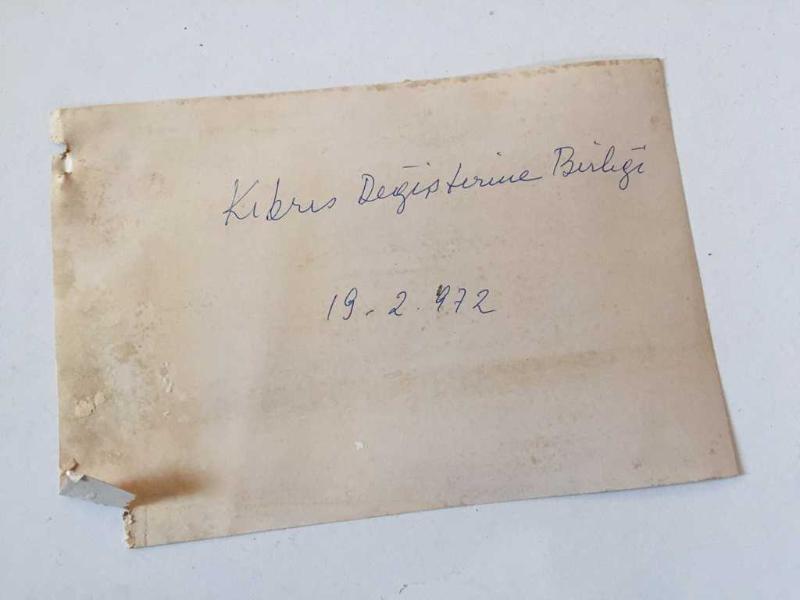 Kıbrıs Değiştirme Birliği
19.2.972